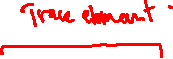 Trace element